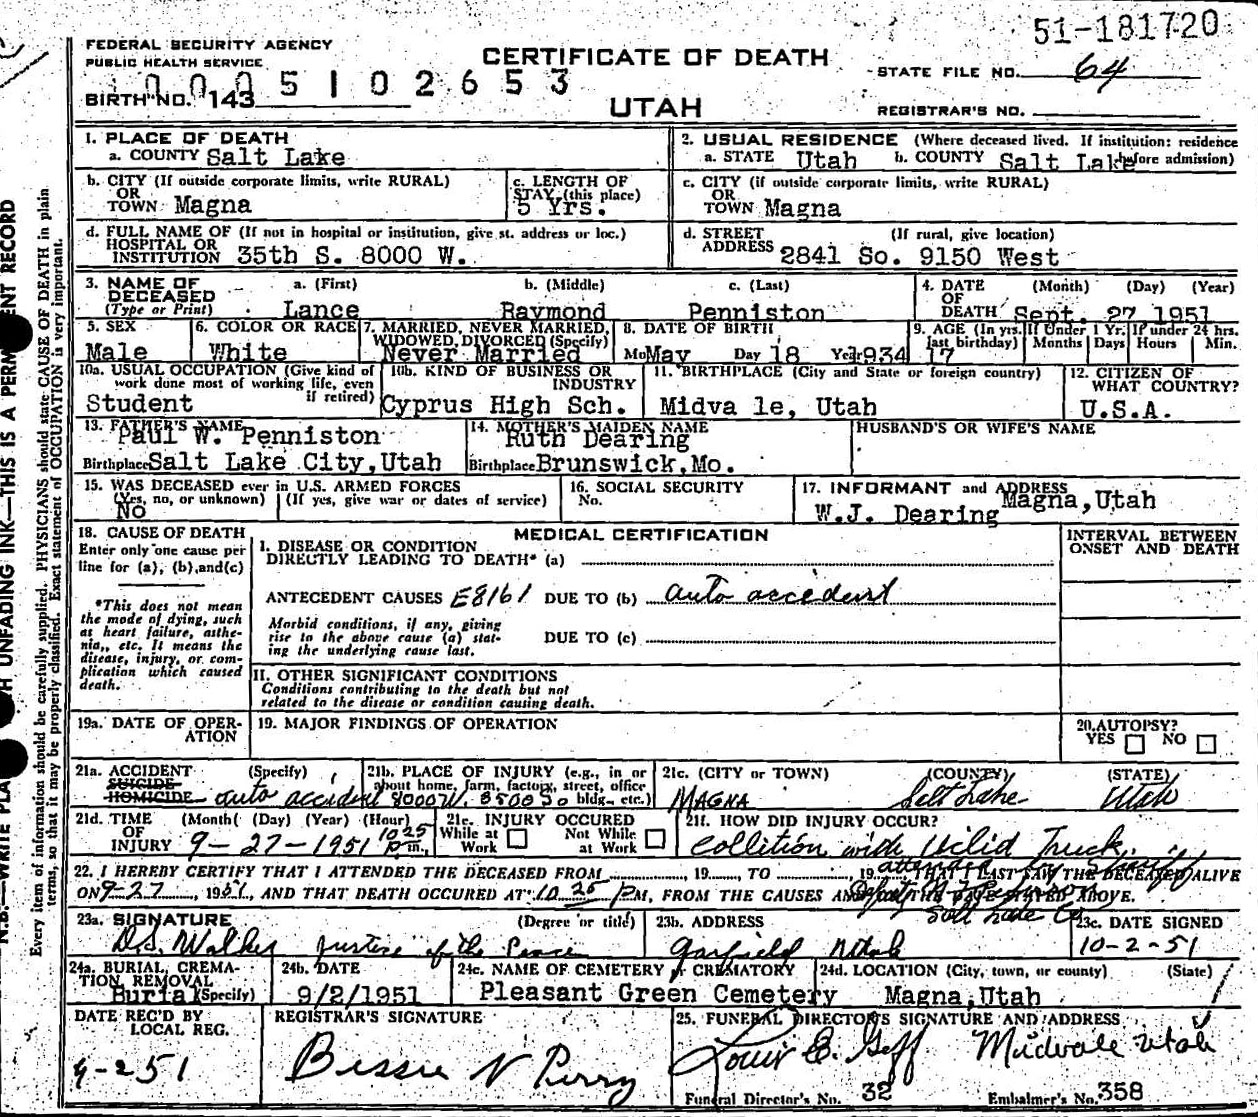 51-181720
FEDERAL SECURITY AGENCY
PUBLIC HEALTH SERVICE
CERTIFICATE OF DEATH
STATE FILE NO. 64
0005102653
BIRTH NO. 143
UTAH
REGISTRAR'S NO.
1. PLACE OF DEATH
a. COUNTY Salt Lake
2. USUAL RESIDENCE (Where deceased lived. If institution: residence before admission)
a. STATE Utah b. COUNTY Salt Lake
b. CITY (If outside corporate limits, write RURAL)
OR
TOWN Magna
c. LENGTH OF STAY (this place)
5 Yrs.
c. CITY (if outside corporate limits, write RURAL)
OR
TOWN Magna
d. FULL NAME OF (If not in hospital or institution, give st. address or loc.)
HOSPITAL OR
INSTITUTION 35th S. 8000 W.
d. STREET (If rural, give location)
ADDRESS 2841 So. 9150 West
3. NAME OF DECEASED
(Type or Print)
a. (First) b. (Middle) c. (Last)
Lance Raymond Penniston
4. DATE OF DEATH (Month) (Day) (Year)
Sept. 27 1951
5. SEX
Male
6. COLOR OR RACE
White
7. MARRIED, NEVER MARRIED, WIDOWED, DIVORCED (Specify)
Never Married
8. DATE OF BIRTH
Mo May Day 18 Yr 1934
9. AGE (In yrs. last birthday)
17
If Under 1 Yr. Months Days
If under 24 hrs. Hours Min.
10a. USUAL OCCUPATION (Give kind of work done most of working life, even if retired)
Student
10b. KIND OF BUSINESS OR INDUSTRY
Cyprus High Sch.
11. BIRTHPLACE (City and State or foreign country)
Midva le, Utah
12. CITIZEN OF WHAT COUNTRY?
U.S.A.
13. FATHER'S NAME
Paul W. Penniston
Birthplace Salt Lake City, Utah
14. MOTHER'S MAIDEN NAME
Ruth Dearing
Birthplace Brunswick, Mo.
HUSBAND'S OR WIFE'S NAME
15. WAS DECEASED ever in U.S. ARMED FORCES
(Yes, no, or unknown) (If yes, give war or dates of service)
No
16. SOCIAL SECURITY
No.
17. INFORMANT and ADDRESS
Magna, Utah
W.J. Dearing
18. CAUSE OF DEATH
Enter only one cause per line for (a), (b), and (c)
*This does not mean the mode of dying, such as heart failure, asthenia, etc. It means the disease, injury, or complication which caused death.
MEDICAL CERTIFICATION
INTERVAL BETWEEN ONSET AND DEATH
I. DISEASE OR CONDITION
DIRECTLY LEADING TO DEATH* (a)
ANTECEDENT CAUSES E8161 DUE TO (b) auto accident
Morbid conditions, if any, giving rise to the above cause (a) stating the underlying cause last.
DUE TO (c)
II. OTHER SIGNIFICANT CONDITIONS
Conditions contributing to the death but not related to the disease or condition causing death.
19a. DATE OF OPERATION
19. MAJOR FINDINGS OF OPERATION
20. AUTOPSY?
YES NO
21a. ACCIDENT (Specify)
SUICIDE
HOMICIDE auto accident
21b. PLACE OF INJURY (e.g., in or about home, farm, factory, street, office bldg., etc.)
8000 W. 3500 So
21c. (CITY or TOWN) (COUNTY) (STATE)
MAGNA Salt Lake Utah
21d. TIME OF INJURY (Month) (Day) (Year) (Hour)
9-27-1951 10 25 P.m.
21e. INJURY OCCURED
While at Work Not While at Work
21f. HOW DID INJURY OCCUR?
Collition with Uclid Truck
22. I HEREBY CERTIFY THAT I ATTENDED THE DECEASED FROM 19 TO 19 THAT I LAST SAW THE DECEASED ALIVE
ON 9-27 1951, AND THAT DEATH OCCURED AT 10 25 P M, FROM THE CAUSES AND ON THE DATE STATED ABOVE.
attended by Sheriff
Salt Lake Co
23a. SIGNATURE (Degree or title)
D.S. Walker Justice of the Peace
23b. ADDRESS
Garfield Utah
23c. DATE SIGNED
10-2-51
24a. BURIAL, CREMATION, REMOVAL (Specify)
Burial
24b. DATE
9/2/1951
24c. NAME OF CEMETERY or CREMATORY
Pleasant Green Cemetery
24d. LOCATION (City, town, or county) (State)
Magna, Utah
DATE REC'D BY LOCAL REG.
9-251
REGISTRAR'S SIGNATURE
Bessie N Perry
25. FUNERAL DIRECTOR'S SIGNATURE AND ADDRESS
Louis E. Goff Midvale Utah
Funeral Director's No. 32 Embalmer's No. 358
UNFADING INK—THIS IS A
Every item of information should be carefully supplied. PHYSICIANS should state CAUSE OF DEATH in plain
terms, so that it may be properly classified. Exact statement of OCCUPATION is very important.